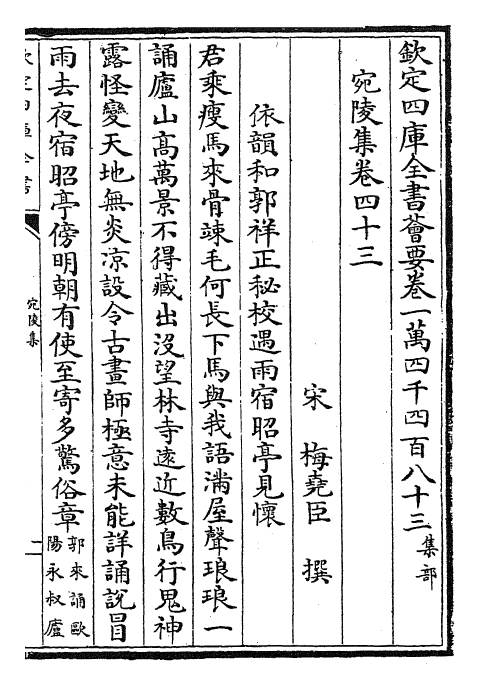 欽定四庫全書薈要卷一萬四千四百八十三集部
宛陵集卷四十三
宋 梅堯臣 撰
依韻和郭祥正秘校遇雨宿昭亭見懷
君乘瘦馬來骨竦毛何長下馬與我語滿屋聲琅琅一
誦廬山高萬景不得藏出沒望林寺遠近數鳥行鬼神
露怪變天地無炎凉設令古畫師極意未能詳誦說冒
雨去夜宿昭亭傍明朝有使至寄多驚俗章郭來誦歐
陽永叔廬
宛陵集